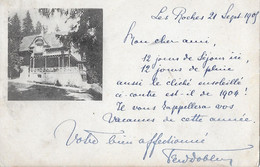 Les Roches 21 Sept. 1905
Mon cher ami,
12 jours de séjour ici,
12 jours de pluie
aussi le cliché ensoleillé
ci contre est-il de 1904 !
Il vous rappellera vos
Vacances de cette année
Votre bien affectionné